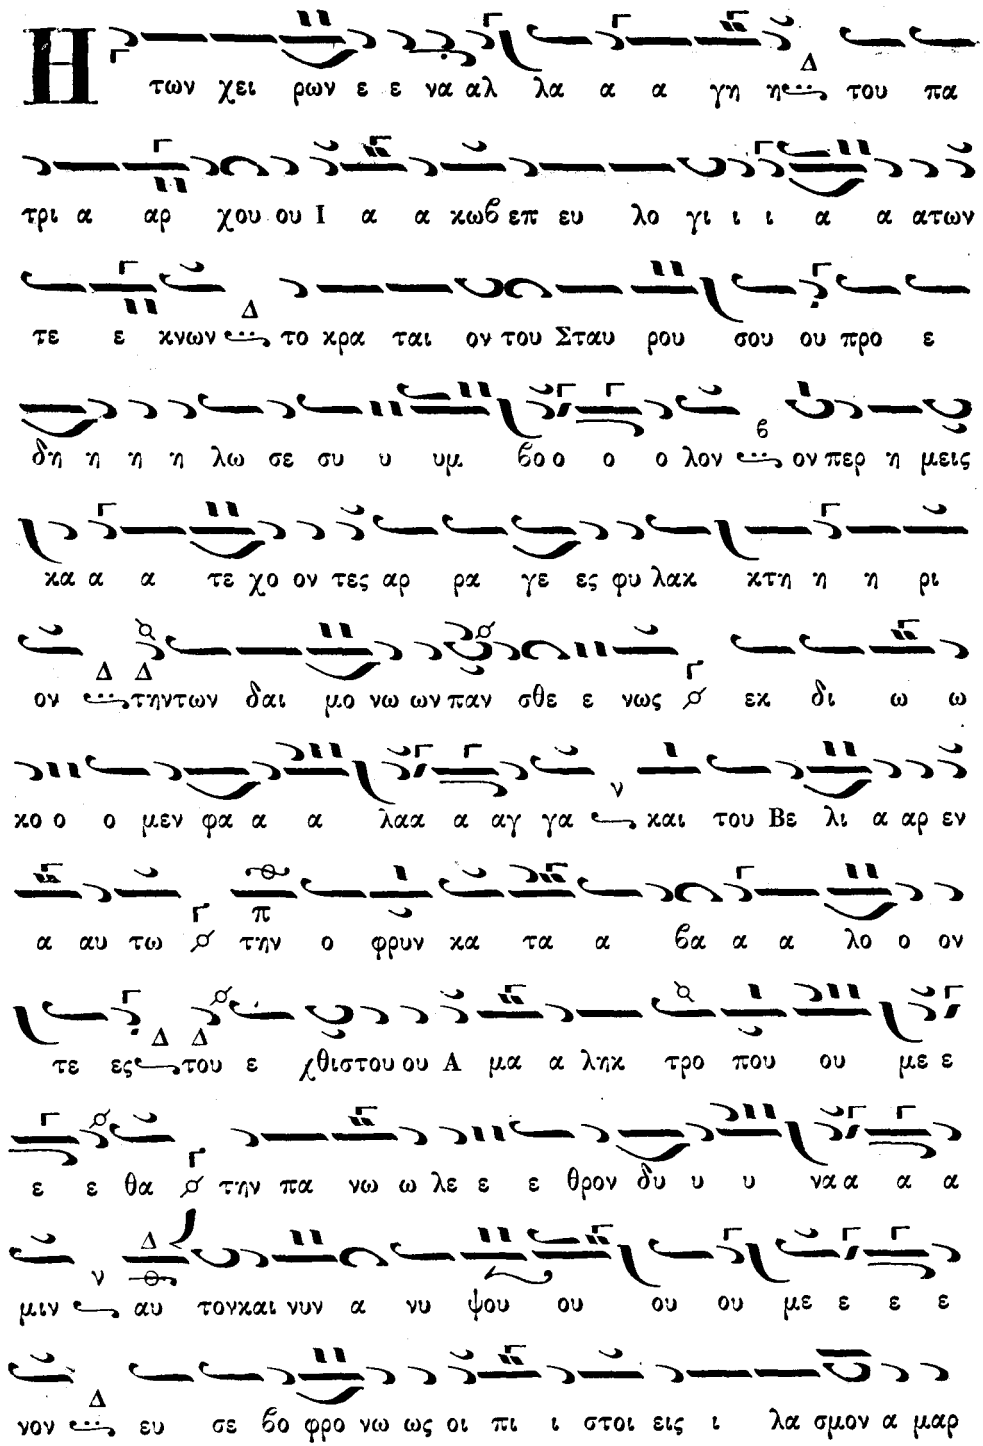 Η των χει ρων ε ε να αλ λα α α γη η Δ του πα
τρι α αρ χου ου Ι α α κωβ επ ευ λο γι ι ι α α ατων
τε ε κνων Δ το κρα ται ον του Σταυ ρου σου ου προ ε
δη η η η λω σε συ υ υμ βο ο ο ο λον β ον περ η μεις
κα α α τε χο ον τες αρ ρα γε ες φυ λακ κτη η η ρι
ον Δ Δ την των δαι μο νω ων παν σθε ε νως Γ εκ δι ω ω
κο ο ο μεν φα α α λαα α αγ γα ν και του Βε λι α αρ εν
α αυ τω Γ π την ο φρυν κα τα α βα α α λο ο ον
τε ες Δ Δ του ε χθισ του ου Α μα α ληκ τρο που ου με ε
ε ε θα Γ την πα νω ω λε ε ε θρον δυ υ υ να α α α
μιν ν Δ αυ τον και νυν α νυ ψου ου ου ου με ε ε ε
νον Δ ευ σε βο φρο νω ως οι πι ι στοι εις ι λα σμον α μαρ